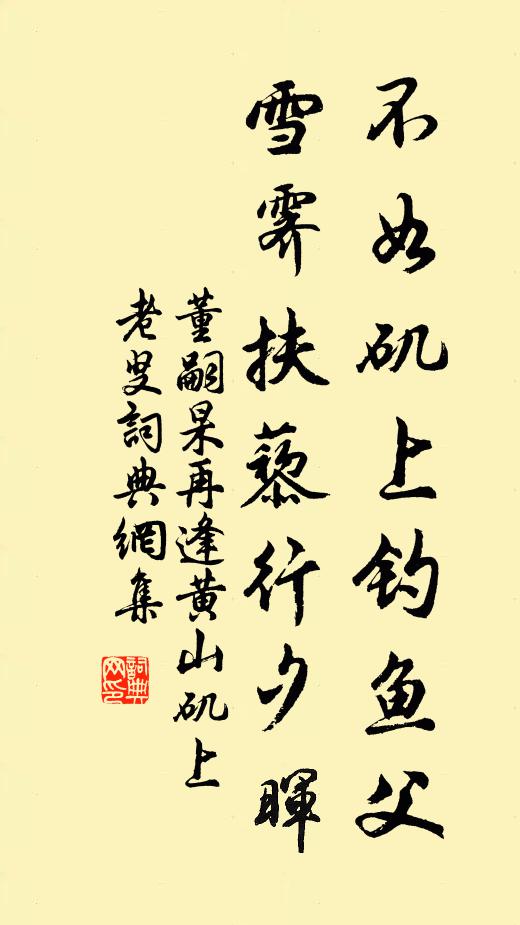 不如矶上钓鱼父
雪霁扶藜行夕暉
董嗣杲再逢黄山矶上
老叟詞典網集
詞典
网印